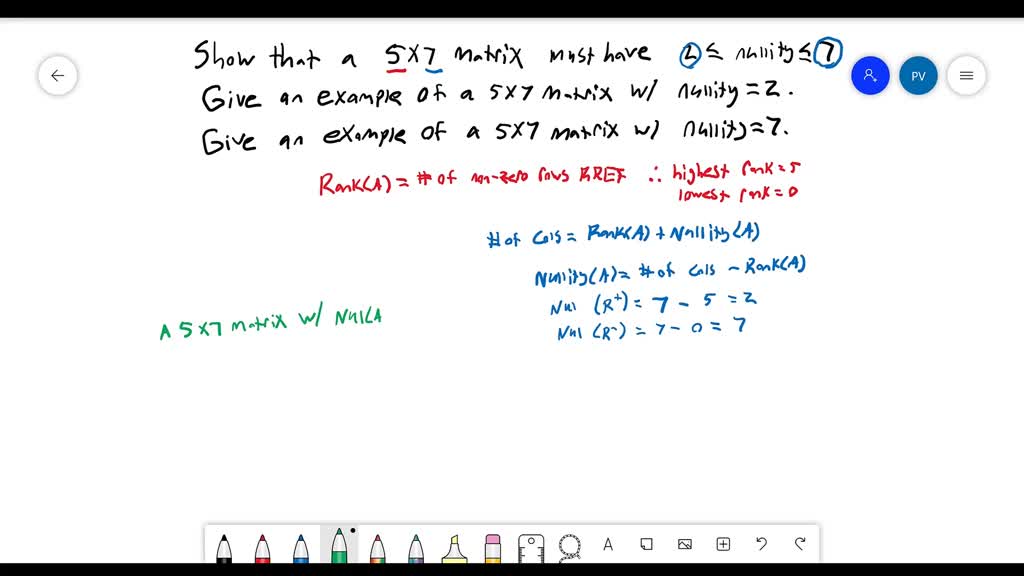 Show that a 5x7 matrix must have 2 ≤ nullity ≤ 7
Give an example of a 5x7 matrix w/ nullity = 2.
Give an example of a 5x7 matrix w/ nullity = 7.
Rank(A) = # of non-zero rows RREF ∴ highest rank = 5
lowest rank = 0
# of cols = Rank(A) + Nullity(A)
Nullity(A) = # of cols - Rank(A)
Nul (R⁺) = 7 - 5 = 2
Nul (R⁻) = 7 - 0 = 7
A 5x7 matrix w/ Nul(A
PV
A